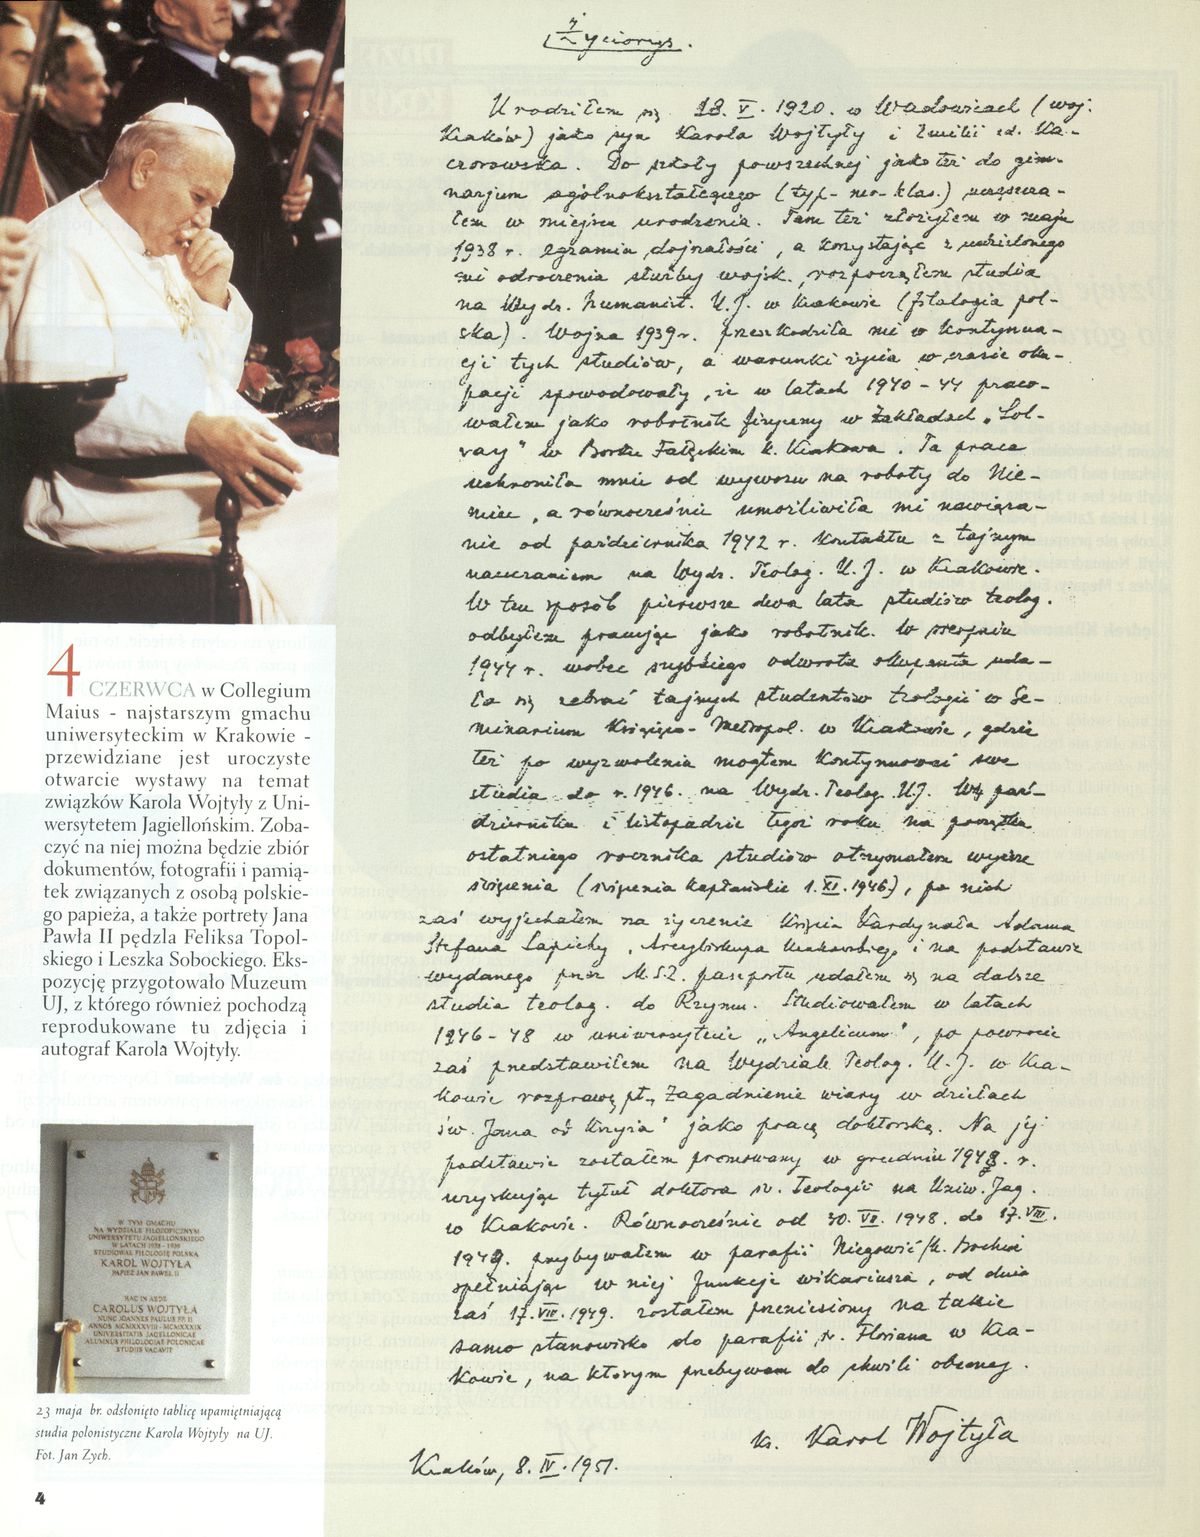 Życiorys.
Urodziłem się 18. V. 1920. w Wadowicach (woj.
Kraków) jako syn Karola Wojtyły i Emilii zd. Ka-
czorowska. Do szkoły powszechnej jako też do gim-
nazjum ogólnokształcącego (typ- neo-klas.) uczęszcza-
łem w miejscu urodzenia. Tam też złożyłem w maju
1938 r. egzamin dojrzałości, a korzystając z udzielonego
mi odroczenia służby wojsk. rozpocząłem studia
na Wydz. humanist. U.J. w Krakowie (filologia pol-
ska). Wojna 1939 r. przeszkodziła mi w kontynua-
cji tych studiów, a warunki życia w czasie oku-
pacji spowodowały, że w latach 1940-44 praco-
wałem jako robotnik fizyczny w Zakładach „Sol-
vay" w Borku Fałęckim k. Krakowa. Ta praca
uchroniła mnie od wywozu na roboty do Nie-
miec, a równocześnie umożliwiła mi nawiąza-
nie od października 1942 r. kontaktu z tajnym
nauczaniem na Wydz. Teolog. U.J. w Krakowie.
W ten sposób pierwsze dwa lata studiów teolog.
odbyłem pracując jako robotnik. W sierpniu
1944 r. wobec szybkiego odwrotu okupanta uda-
ło się zebrać tajnych studentów teologii w Se-
minarium Książęco-Metropol. w Krakowie, gdzie
też po wyzwolenia mogłem kontynuować swe
studia do r. 1946. na Wydz. Teolog. U.J. W paź-
dzierniku i listopadzie tegoż roku na początku
ostatniego rocznika studiów otrzymałem wyższe
święcenia (święcenia kapłańskie 1. XI. 1946), po nich
zaś wyjechałem na życzenie Księcia Kardynała Adama
Stefana Sapiehy, Arcybiskupa Krakowskiego i na podstawie
wydanego przez M.S.Z. paszportu udałem się na dalsze
studia teolog. do Rzymu. Studiowałem w latach
1946-48 w uniwersytecie „Angelicum", po powrocie
zaś przedstawiłem na Wydziale Teolog. U.J. w Kra-
kowie rozprawę pt. „Zagadnienie wiary w dziełach
św. Jana od Krzyża" jako pracę doktorską. Na jej
podstawie zostałem promowany w grudniu 1948. r.
uzyskując tytuł doktora św. Teologii na Uniw. Jag.
w Krakowie. Równocześnie od 30. VII. 1948. do 17. VIII.
1949. przybywałem w parafii Niegowić /k. Bochni
spełniając w niej funkcje wikariusza, od dnia
zaś 17. VIII. 1949. zostałem przeniesiony na takie
samo stanowisko do parafii św. Floriana w Kra-
kowie, na którym przebywam do chwili obecnej.
ks. Karol Wojtyła
Kraków, 8. IV. 1951.
4 CZERWCA w Collegium
Maius - najstarszym gmachu
uniwersyteckim w Krakowie -
przewidziane jest uroczyste
otwarcie wystawy na temat
związków Karola Wojtyły z Uni-
wersytetem Jagiellońskim. Zoba-
czyć na niej można będzie zbiór
dokumentów, fotografii i pamią-
tek związanych z osobą polskie-
go papieża, a także portrety Jana
Pawła II pędzla Feliksa Topol-
skiego i Leszka Sobockiego. Eks-
pozycję przygotowało Muzeum
UJ, z którego również pochodzą
reprodukowane tu zdjęcia i
autograf Karola Wojtyły.
W TYM GMACHU
NA WYDZIALE FILOZOFICZNYM
UNIWERSYTETU JAGIELLOŃSKIEGO
W LATACH 1938-1939
STUDIOWAŁ FILOLOGIĘ POLSKĄ
KAROL WOJTYŁA
PAPIEŻ JAN PAWEŁ II
HAC IN AEDE
CAROLUS WOJTYŁA
NUNC JOANNES PAULUS PP. II
ANNOS MCMXXXVIII-MCMXXXIX
UNIVERSITATIS JAGELLONICAE
ALUMNUS PHILOLOGIAE POLONICAE
STUDIIS VACAVIT
23 maja br. odsłonięto tablicę upamiętniającą
studia polonistyczne Karola Wojtyły na UJ.
Fot. Jan Zych.
4